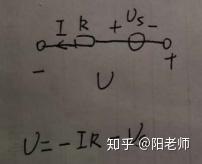 I R + Us -
- U +
U = -IR - Us
知乎 @阳老师